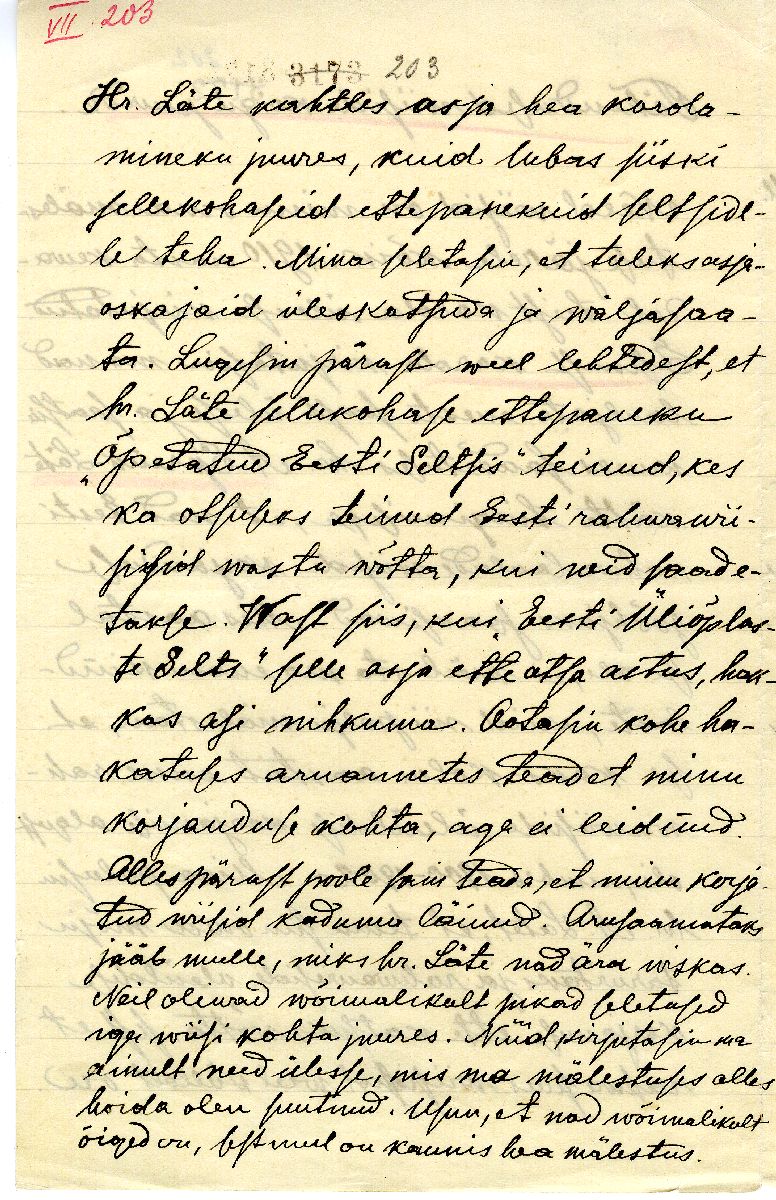 VII 203
3173 203
Hr. Läte kahtles asja hea korda-
mineku juures, kuid lubas siiski
sellekohaseid ettepanekuid seltside-
le teha. Mina seletasin, et tuleks asja-
oskajaid üleskutsuda ja wäljasaa-
ta. Lugesin pärast weel lehtedest, et
hr. Läte sellekohase ettepaneku
„Õpetatud Eesti Seltsis" teinud, kes
ka otsuseks teinud Eesti rahwawii-
sisid wastu wõtta, kui neid saade-
takse. Wast siis, kui „Eesti Üliõplas-
te Selts" selle asja etteotsa astus, hak-
kas asi nihkuma. Ootasin kohe ha-
katuses aruannetes teadet minu
korjanduse kohta, aga ei leidnud.
Alles pärast poole sain teada, et minu korja-
tud wiisid kaduma läinud. Arusaamataks
jääb mulle, miks hr. Läte nad ära wiskas.
Neil oliwad wõimalikult pikad seletused
iga wiisi kohta juures. Nüüd kirjutasin ma
ainult need ülesse, mis ma mälestuses alles
hoida olen suutnud. Usun, et nad wõimalikult
õiged on, sest mul on kaunis hea mälestus.